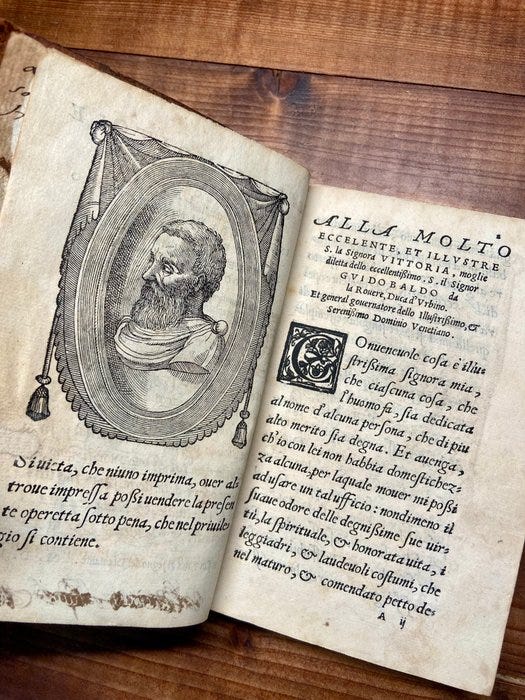 Si vieta, che niuno imprima, ouer al
troue impressa possi vendere la presen
te operetta sotto pena, che nel priuile-
gio si contiene.
ALLA MOLTO
ECCELENTE, ET ILLVSTRE
S. la Signora VITTORIA, moglie
diletta dello eccellentissimo, S. il Signor
GVIDOBALDO da
la Rouere, Duca d'Vrbino.
Et general gouernatore dello Illustrissimo, &
Serenissimo Dominio Venetiano.
COnueneuole cosa è illu
strissima signora mia,
che ciascuna cosa, che
l'huomo fa, sia dedicata
al nome d'alcuna persona, che di piu
alto merito sia degna. Et auenga,
ch'io con lei non habbia domestichez-
za alcuna, per laquale mouer mi possi
ad usare un tal ufficio: nondimeno il
suaue odore delle degnissime sue uir-
tù, la spirituale, & honorata uita, i
leggiadri, & laudeuoli costumi, che
nel maturo, & comendato petto de-
A ij